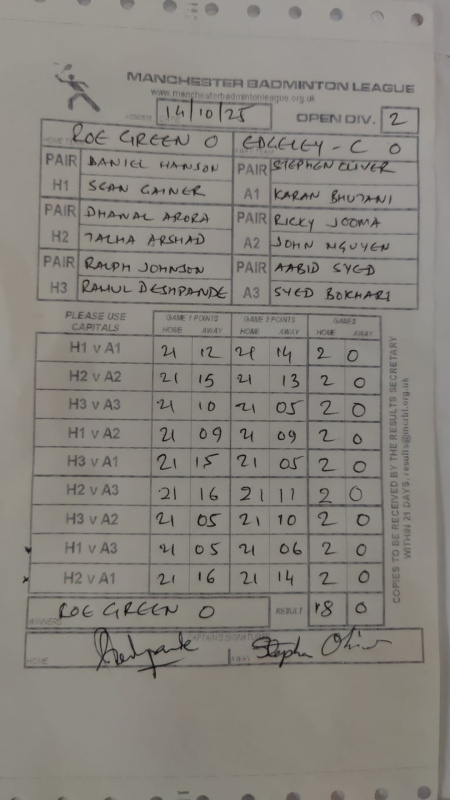 MANCHESTER BADMINTON LEAGUE
www.manchesterbadmintonleague.org.uk
14/10/25 OPEN DIV. 2
ROE GREEN O EDGELEY - C O
PAIR DANIEL HANSON PAIR STEPHEN OLIVER
H1 SEAN GAINER A1 KARAN BHUTANI
PAIR DHANAL ARORA PAIR RICKY JOOMA
H2 TALHA ARSHAD A2 JOHN NGUYEN
PAIR RALPH JOHNSON PAIR AABID SYED
H3 RAHUL DESHPANDE A3 SYED BOKHARI
PLEASE USE CAPITALS GAME 1 POINTS GAME 2 POINTS GAMES
HOME AWAY HOME AWAY HOME AWAY
H1 v A1 21 12 21 14 2 0
H2 v A2 21 15 21 13 2 0
H3 v A3 21 10 21 05 2 0
H1 v A2 21 09 21 09 2 0
H3 v A1 21 15 21 05 2 0
H2 v A3 21 16 21 11 2 0
H3 v A2 21 05 21 10 2 0
H1 v A3 21 05 21 06 2 0
H2 v A1 21 16 21 14 2 0
WINNERS ROE GREEN O RESULT 18 0
CAPTAINS SIGNATURES
HOME Deshpande AWAY Stephen Oliver
COPIES TO BE RECEIVED BY THE RESULTS SECRETARY
WITHIN 21 DAYS,